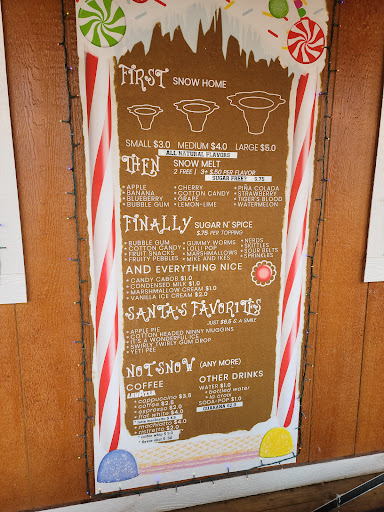 FIRST SNOW HOME
SMALL $3.0 MEDIUM $4.0 LARGE $5.0
ALL NATURAL FLAVORS
THEN SNOW MELT
2 FREE | 3+ $.50 PER FLAVOR
SUGAR FREE? $.75
• APPLE • CHERRY • PIÑA COLADA
• BANANA • COTTON CANDY • STRAWBERRY
• BLUEBERRY • GRAPE • TIGER'S BLOOD
• BUBBLE GUM • LEMON-LIME • WATERMELON
FINALLY SUGAR N' SPICE
$.75 PER TOPPING
• BUBBLE GUM • GUMMY WORMS • NERDS
• COTTON CANDY • LOLLI POP • SKITTLES
• FRUIT SNACKS • MARSHMALLOWS • SOUR BELTS
• FRUITY PEBBLES • MIKE AND IKES • SPRINKLES
AND EVERYTHING NICE
• CANDY CABOB $1.0
• CONDENSED MILK $1.0
• MARSHMALLOW CREAM $1.0
• VANILLA ICE CREAM $2.0
SANTA'S FAVORITES
JUST $6.5 & A SMILE
• APPLE PIE
• COTTON HEADED NINNY MUGGINS
• IT'S A WONDERFUL ICE
• SWIRLY TWIRLY GUM DROP
• YETI PEE
NOT SNOW (ANY MORE)
COFFEE OTHER DRINKS
LAVAZZA WATER $1.0
• cappuccino $3.5 • bottled water
• coffee $2.5 • la croix
• espresso $2.0 SODA-POP $1.0
• flat white $4.0 GUARANA $2.0
• macchiato $4.0
• ristretto $2.0